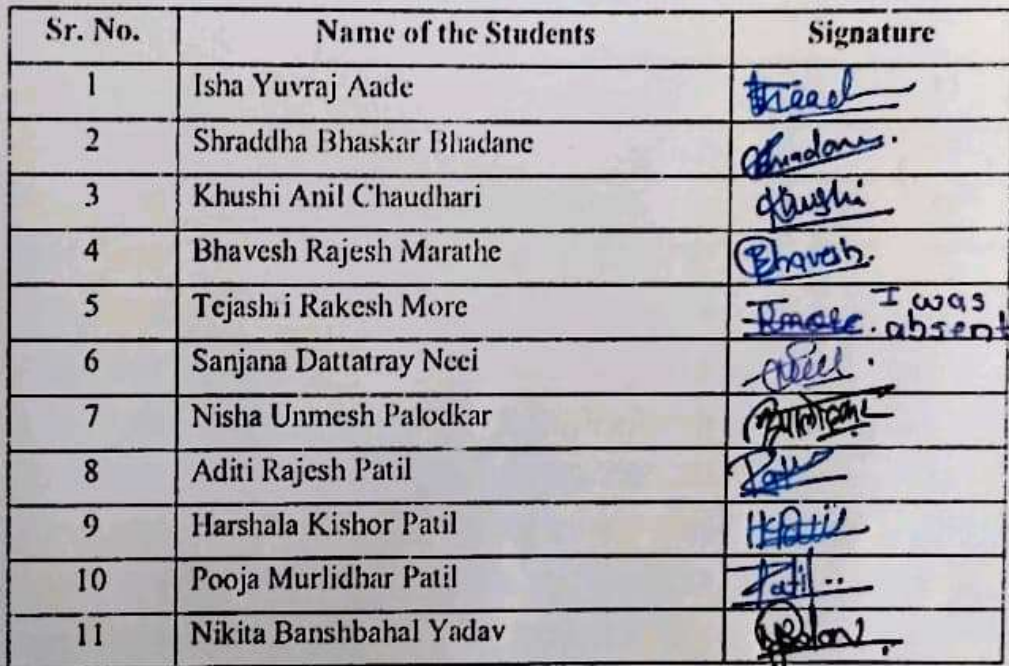 Sr. No. Name of the Students Signature
1 Isha Yuvraj Aade
2 Shraddha Bhaskar Bhadane Bhadane.
3 Khushi Anil Chaudhari Khushi
4 Bhavesh Rajesh Marathe Bhavesh.
5 Tejashri Rakesh More Rmore. I was absent
6 Sanjana Dattatray Neei
7 Nisha Unmesh Palodkar
8 Aditi Rajesh Patil Patil
9 Harshala Kishor Patil HPatil
10 Pooja Murlidhar Patil Patil..
11 Nikita Banshbahal Yadav